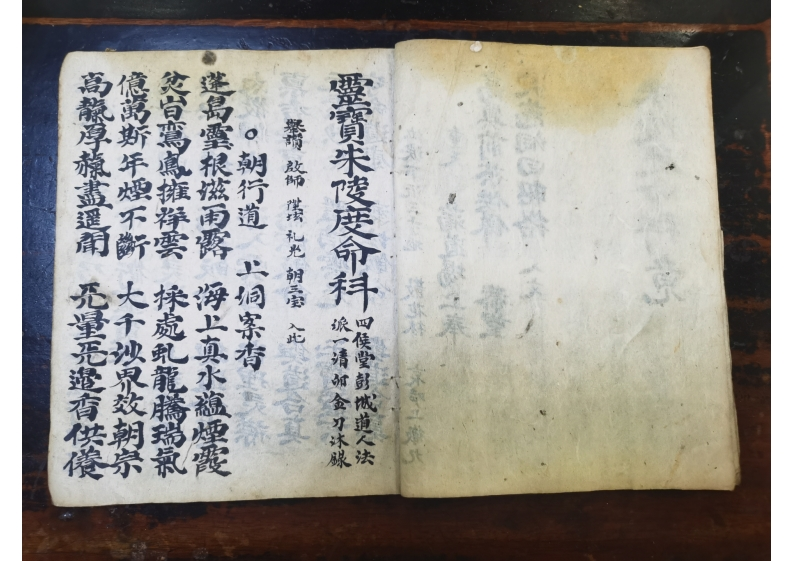 靈寶朱陵度命科
四侯堂彭城道人法
派一清卬金刀沐錄
舉讚 啟師 淨坛 礼光 朝三宝 入此
○朝行道 上洞案香
蓬島靈根滋雨露 海上真水蘊煙霞
炁台鸞鳳擁祥雲 採處虬龍騰瑞氣
億萬斯年煙不斷 大千沙界效朝宗
高靛厚赫盡遥聞 旡量旡邉香供飬